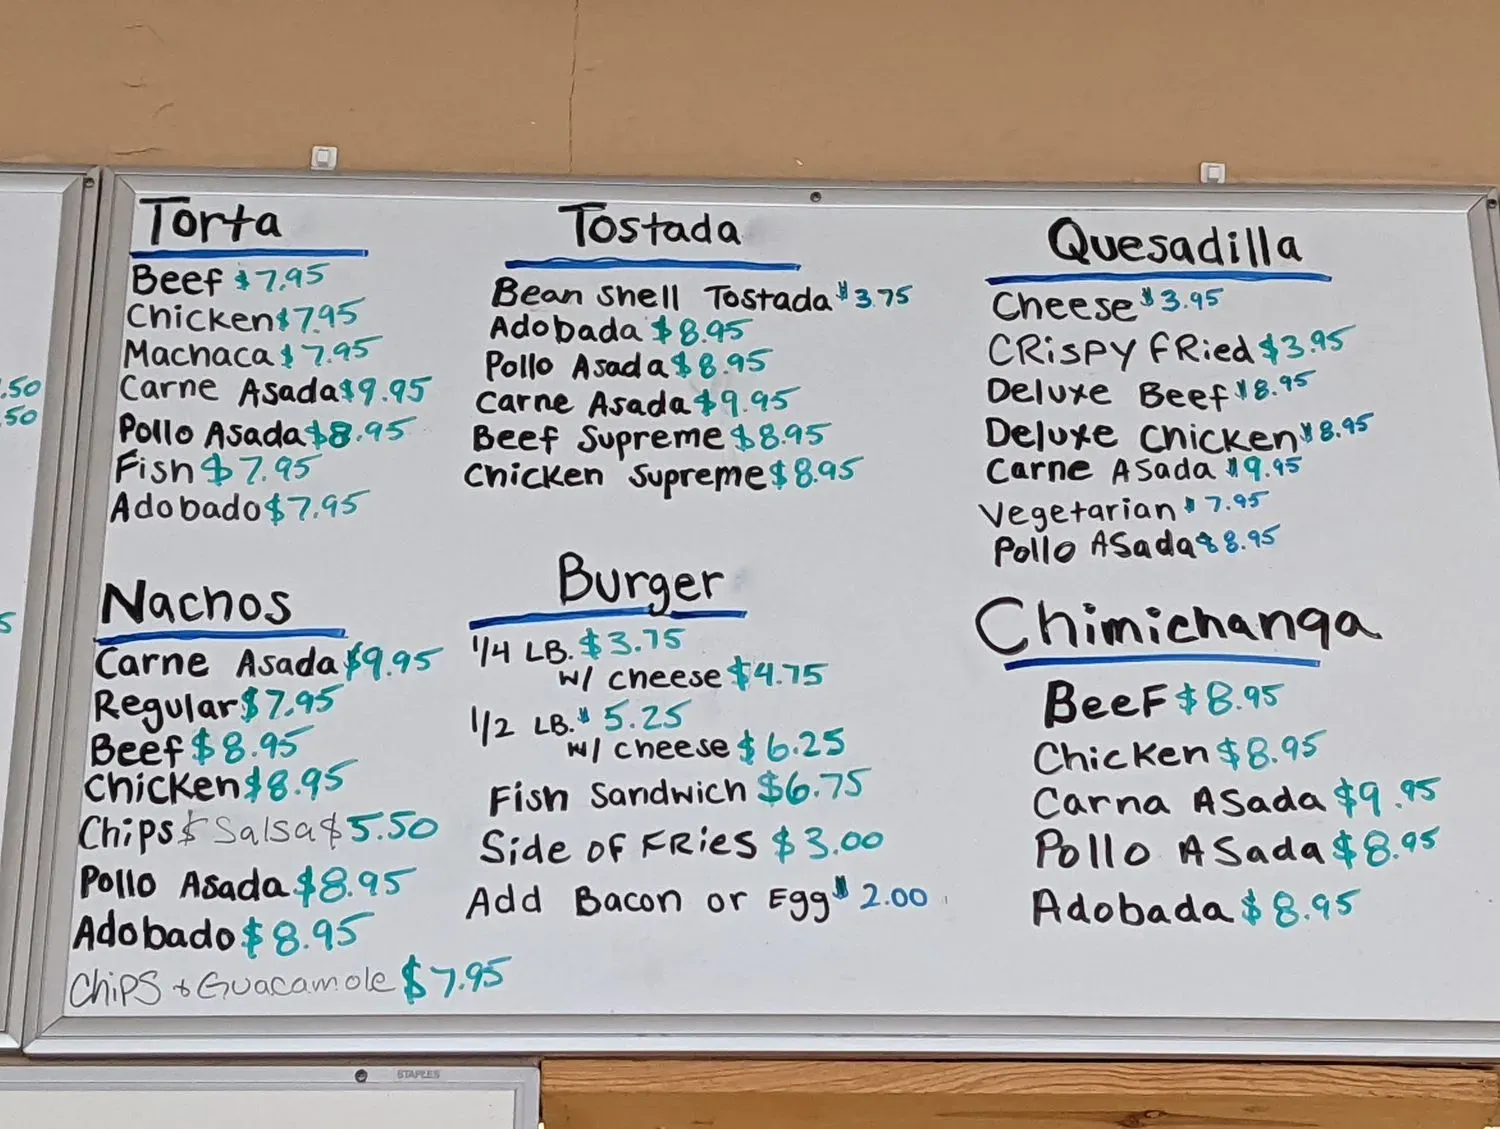 Torta
Beef $7.95
Chicken $7.95
Machaca $7.95
Carne Asada $9.95
Pollo Asada $8.95
Fish $7.95
Adobado $7.95
Nachos
Carne Asada $9.95
Regular $7.95
Beef $8.95
Chicken $8.95
Chips & Salsa $5.50
Pollo Asada $8.95
Adobado $8.95
Chips & Guacamole $7.95
Tostada
Bean Shell Tostada $3.75
Adobada $8.95
Pollo Asada $8.95
Carne Asada $9.95
Beef Supreme $8.95
Chicken Supreme $8.95
Burger
1/4 LB. $3.75
w/ cheese $4.75
1/2 LB. $5.25
w/ cheese $6.25
Fish Sandwich $6.75
Side of Fries $3.00
Add Bacon or Egg $2.00
Quesadilla
Cheese $3.95
Crispy Fried $3.95
Deluxe Beef $8.95
Deluxe Chicken $8.95
Carne Asada $9.95
Vegetarian $7.95
Pollo Asada $8.95
Chimichanga
Beef $8.95
Chicken $8.95
Carna Asada $9.95
Pollo Asada $8.95
Adobada $8.95
.50
.50
STAPLES